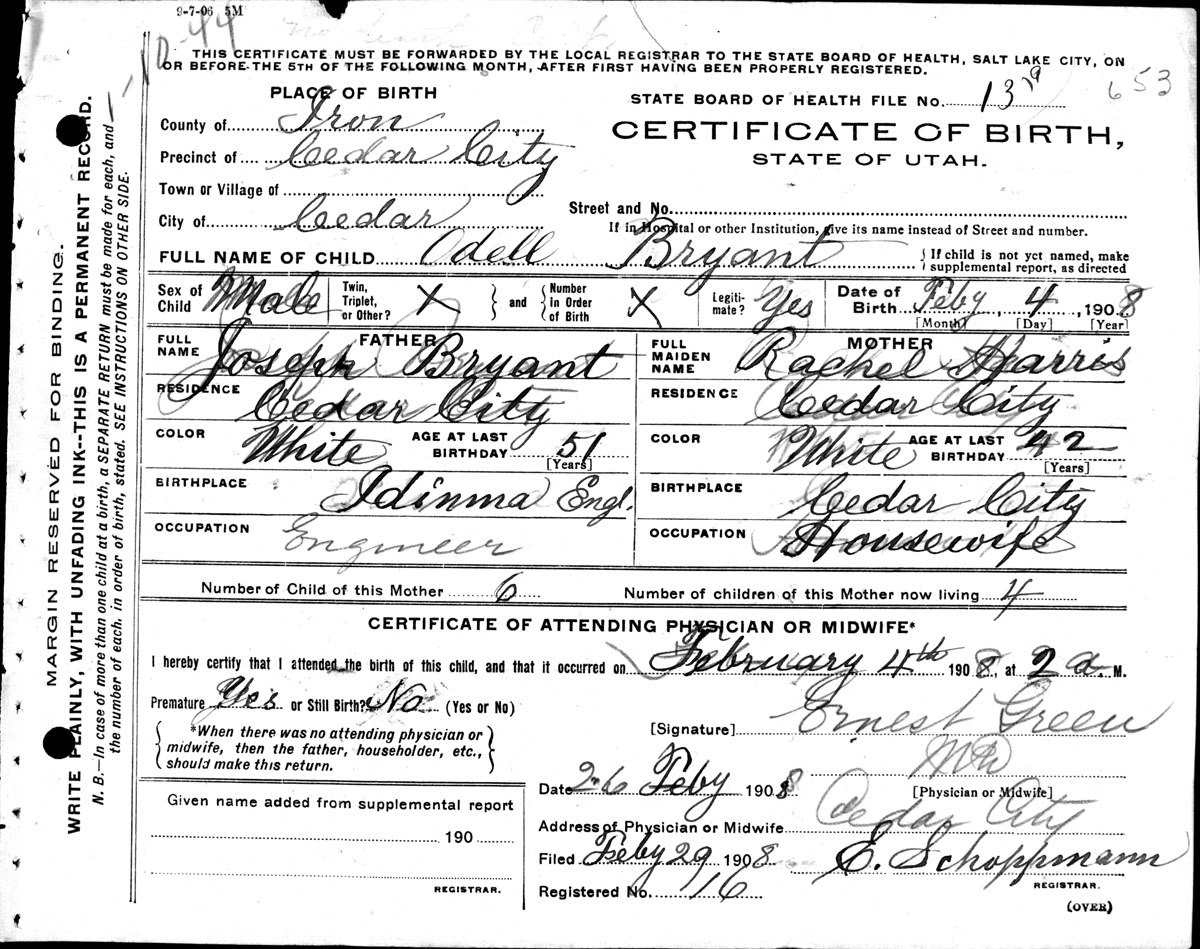 9-7-06 5M
THIS CERTIFICATE MUST BE FORWARDED BY THE LOCAL REGISTRAR TO THE STATE BOARD OF HEALTH, SALT LAKE CITY, ON
OR BEFORE THE 5TH OF THE FOLLOWING MONTH, AFTER FIRST HAVING BEEN PROPERLY REGISTERED.
653
PLACE OF BIRTH
STATE BOARD OF HEALTH FILE No. 13
County of Iron
CERTIFICATE OF BIRTH,
STATE OF UTAH.
Precinct of Cedar City
Town or Village of
City of Cedar
Street and No.
If in Hospital or other Institution, give its name instead of Street and number.
FULL NAME OF CHILD Odell Bryant { If child is not yet named, make supplemental report, as directed
Sex of Child Male Twin, Triplet, or Other? X } and { Number in Order of Birth X Legitimate? Yes Date of Birth Feby 4, 1908
[Month] [Day] [Year]
FATHER
FULL NAME Joseph Bryant
RESIDENCE
Cedar City
COLOR White AGE AT LAST BIRTHDAY 51
[Years]
BIRTHPLACE Idinma Engl.
OCCUPATION Engineer
MOTHER
FULL MAIDEN NAME Rachel Harris
RESIDENCE Cedar City
COLOR White AGE AT LAST BIRTHDAY 42
[Years]
BIRTHPLACE Cedar City
OCCUPATION Housewife
Number of Child of this Mother 6 Number of children of this Mother now living 4
CERTIFICATE OF ATTENDING PHYSICIAN OR MIDWIFE*
I hereby certify that I attended the birth of this child, and that it occurred on February 4th 1908, at 2 a. M.
Premature Yes or Still Birth? No (Yes or No)
{ *When there was no attending physician or
midwife, then the father, householder, etc.,
should make this return. }
[Signature] Ernest Green
MD
[Physician or Midwife]
Date 26 Feby 1908
Address of Physician or Midwife Cedar City
Filed Feby 29 1908 E. Schoppmann
REGISTRAR.
Registered No. 16
(OVER)
Given name added from supplemental report
190
REGISTRAR.
MARGIN RESERVED FOR BINDING.
WRITE PLAINLY, WITH UNFADING INK--THIS IS A PERMANENT RECORD.
N. B.—In case of more than one child at a birth, a SEPARATE RETURN must be made for each, and
the number of each. in order of birth, stated. SEE INSTRUCTIONS ON OTHER SIDE.